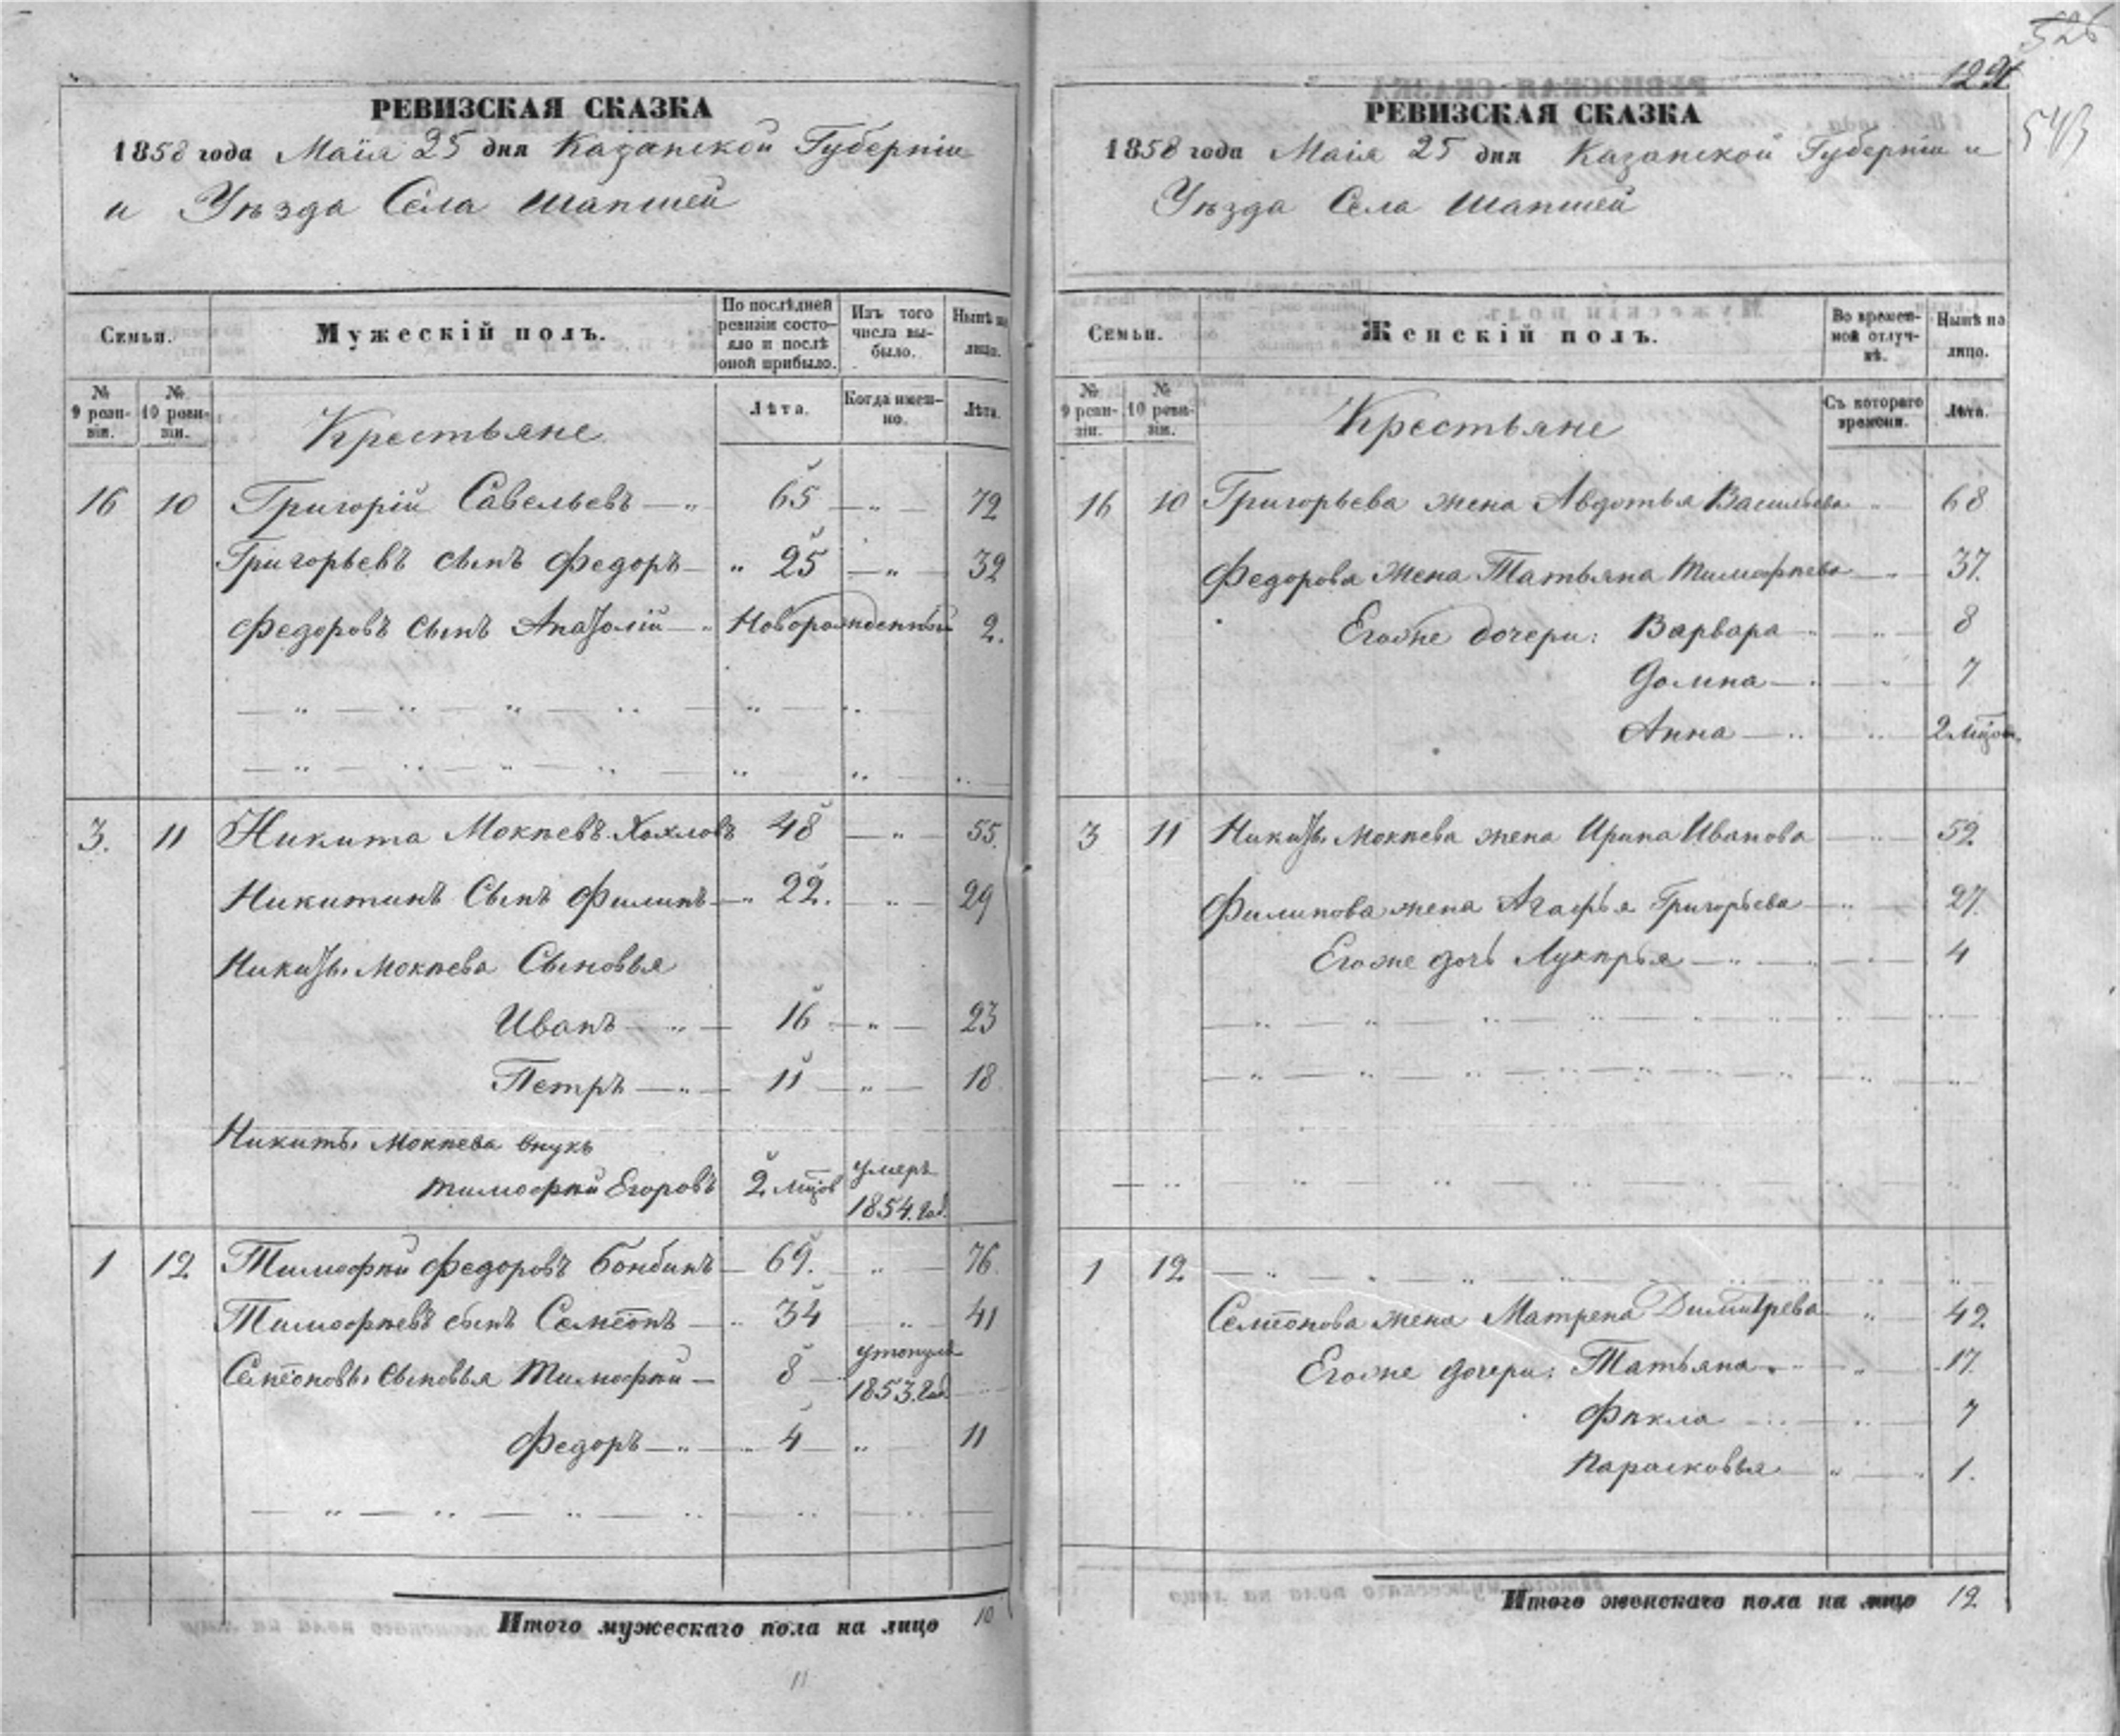 РЕВИЗСКАЯ СКАЗКА
1858 года Маія 25 дня Казанской Губерніи
и Уѣзда Села Шапшей
Семьи.
Мужескій полъ.
По послѣдней ревизіи состояло и послѣ оной прибыло.
Изъ того числа выбыло.
Нынѣ на лицо.
№ 9 ревизіи.
№ 10 ревизіи.
Крестьяне
Лѣта.
Когда именно.
Лѣта.
16 10 Григорій Савельевъ 65 72
Григорьевъ сынъ Федоръ 25 32
Федоровъ сынъ Анатолій Новорожденный 2.
3. 11 Никита Мокѣевъ Хохловъ 48 55.
Никитинъ Сынъ Филипъ 22. 29
Никиты Мокѣева Сыновья
Иванъ 16 23
Петръ 11 18
Никиты Мокѣева внукъ
Тимофѣй Егоровъ 2 мѣсов умеръ 1854. год.
1 12 Тимофѣй Федоровъ Бонбинъ 69. 76.
Тимофѣевъ сынъ Семіонъ 34 41
Семіоновы сыновья Тимофѣй 8 утонулъ 1853. год.
Федоръ 4 11
Итого мужескаго пола на лицо 10
11
526
129
543
РЕВИЗСКАЯ СКАЗКА
1858 года Маія 25 дня Казанской Губерніи и
Уѣзда Села Шапшей
Семьи.
Женскій полъ.
Во временной отлучкѣ.
Нынѣ на лицо.
№ 9 ревизіи.
№ 10 ревизіи.
Крестьяне
Съ котораго времени.
Лѣта.
16 10 Григорьева жена Авдотья Васильева 68
Федорова Жена Татьяна Тимофѣева 37.
Егоже дочери: Варвара 8
Домна 7
Анна 2 мѣсов.
3 11 Никиты Мокѣева жена Ирина Иванова 52.
Филипова жена Агафья Григорьева 27.
Егоже дочь Лукѣрья 4
1 12
Семіонова жена Матрена Димитрева 42.
Егоже дочери: Татьяна 17.
Фѣкла 7
Парасковья 1.
Итого женскаго пола на лицо 12